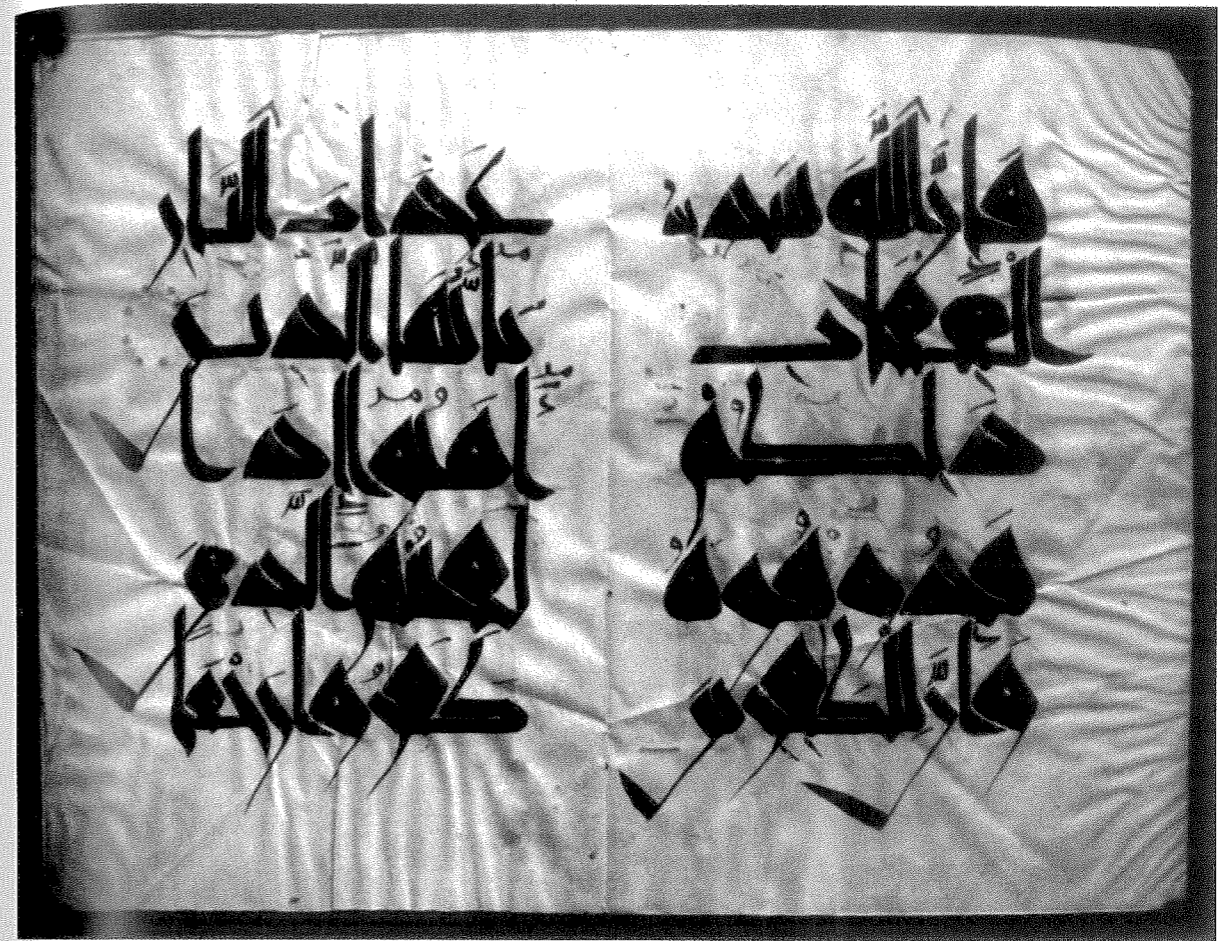 فان الله شديد
العقاب
ذلكم
فذوقوه
وان للكفرين
عذاب النار
يايها الذين
امنوا اذا
لقيتم الذين
كفروا زحفا